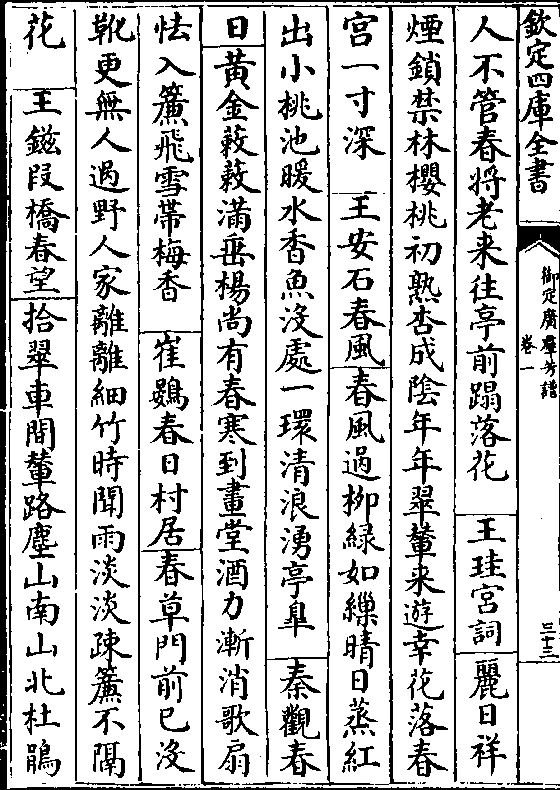 欽定四庫全書
御定廣羣芳譜
卷一
三十三
人不管春將老来往亭前蹋落花　王珪宫詞　麗日祥
煙鎖禁林櫻桃初熟杏成陰年年翠輦来遊幸花落春
宫一寸深　王安石春風　春風過柳緑如繰晴日蒸紅
出小桃池暖水香魚没處一環清浪湧亭臯　秦觀春
日　黄金蔌蔌滿垂楊尚有春寒到畫堂酒力漸消歌扇
怯入簾飛雪帶梅香　崔鷃春日村居　春草門前已没
靴更無人過野人家離離細竹時聞雨淡淡疎簾不隔
花　王鎡叚橋春望　拾翠車間輦路塵山南山北杜鵑